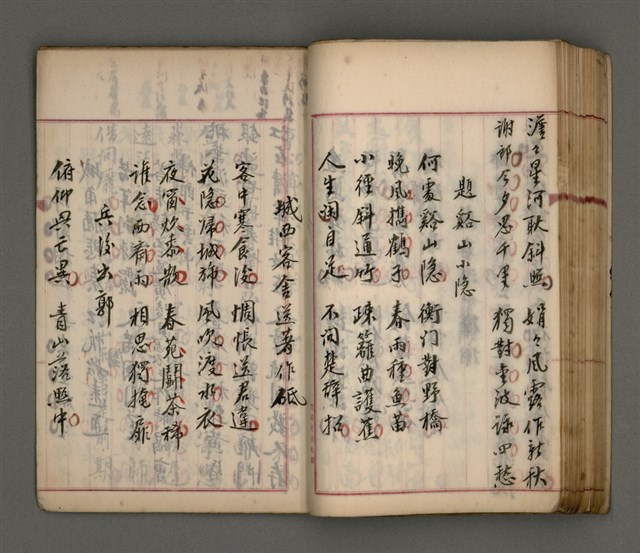 澹々星河耿斜照 娟々風露作新秋
謝郎今夕思千里 獨對金波詠四愁
題谿山小隱
何處谿山隱 衡門對野橋
晚風攜鶴子 春雨種魚苗
小徑斜通竹 疎籬曲護蕉
人生閑自足 不問楚辭招
城西客舍送著作砥
客中寒食後 惆悵送君違
花隱歸城斾 風吹渡水衣
夜窗炊黍散 春苑鬪茶稀
誰念西齋雨 相思獨掩扉
兵後出郭
俯仰興亡異 青山落照中